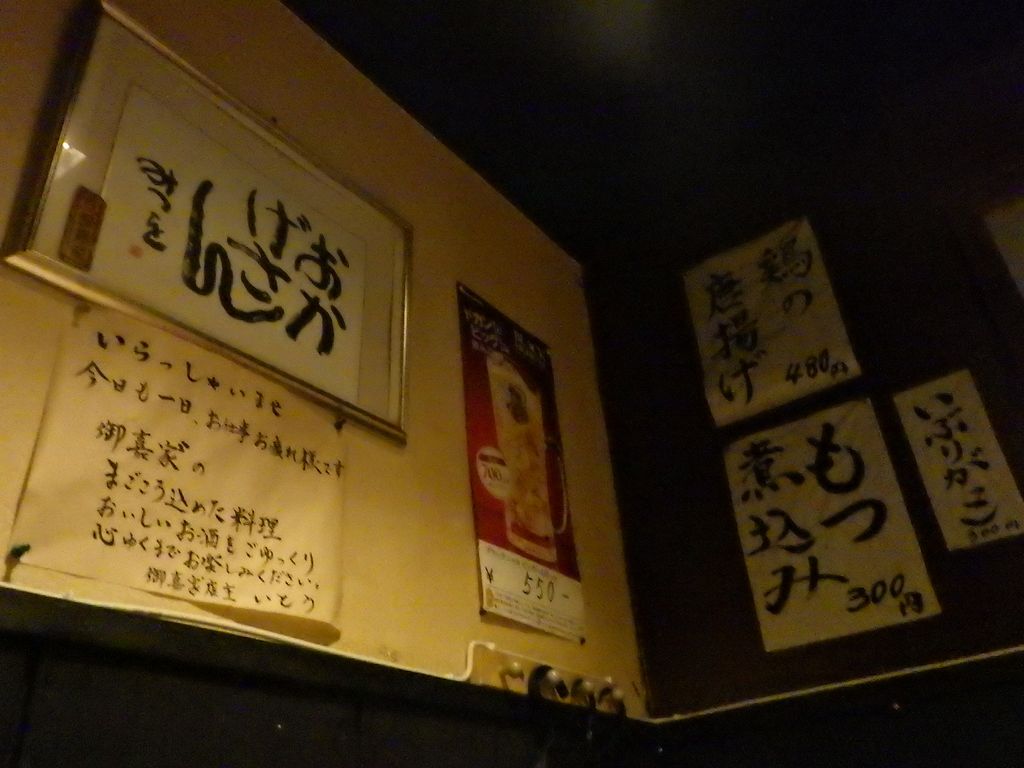 おかげさん
みつを
いらっしゃいませ
今日も一日、お仕事お疲れ様です
御喜家の
まごころ込めた料理
おいしいお酒をごゆっくり
心ゆくまでお楽しみください。
御喜家店主 いとう
700
¥550-
鶏の
唐揚げ
480円
もつ
煮込み
300円
いぶりがっこ
300円